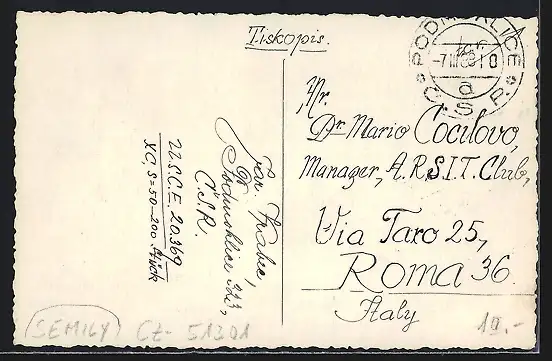 Tiskopis.
PODMOKLICE
-7.III 39-10
a
Č.S.R.
Mr.
Dr Mario Cocilovo,
Manager, A.R.S.I.T. Club,
Via Taro 25,
Roma 36.
Italy
Jar. Vrabec,
Podmoklice 223,
Č.S.R.
U.S.C.E. 20.369
XC, S=50-200 Stück
(SEMILY) CZ- 51301
10,-